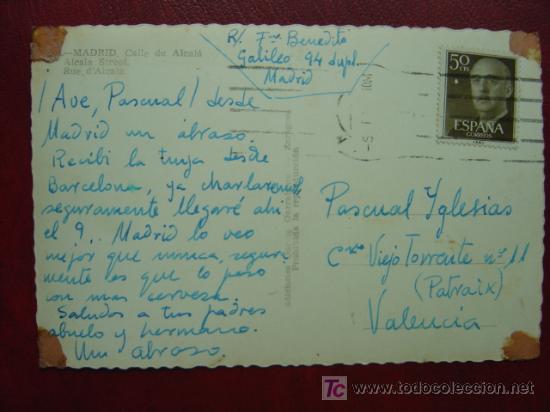 .—MADRID. Calle de Alcalá
Alcala Street.
Rue, d'Alcala
R/. Fco Benedito
Galileo 94 dupl.
Madrid
50
CTS
ESPAÑA
CORREOS
¡Ave, Pascual! desde
Madrid un abrazo.
Recibí la tuya desde
Barcelona, ya charlaremos
seguramente llegaré ahí
el 9.. Madrid lo veo
mejor que nunca, segura
mente es que lo paso
con mas cerveza.
Saludos a tus padres
abuelo y hermano.
Un abrazo.
Prohibida la reproducción
Pascual Yglesias
Cno Viejo Torrente nº 11
(Patraix)
Valencia
TC
todocoleccion
www.todocoleccion.net